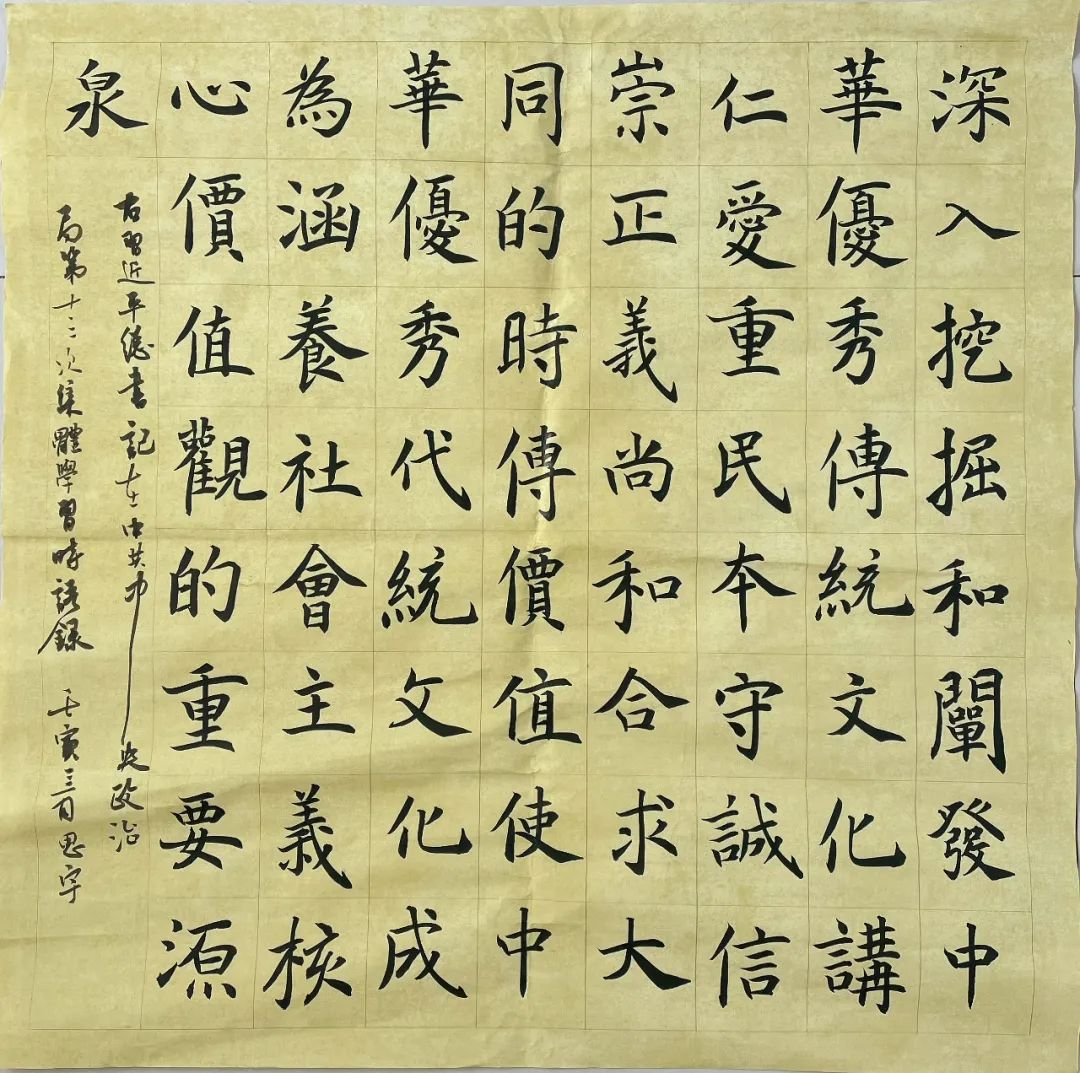 深入挖掘和闡發中
華優秀傳統文化講
仁愛重民本守誠信
崇正義尚和合求大
同的時傳價值使中
華優秀代統文化成
為涵養社會主義核
心價值觀的重要源
泉
右習近平總書記在中共中央政治
局第十三次集體學習時語錄 壬寅三月思宇